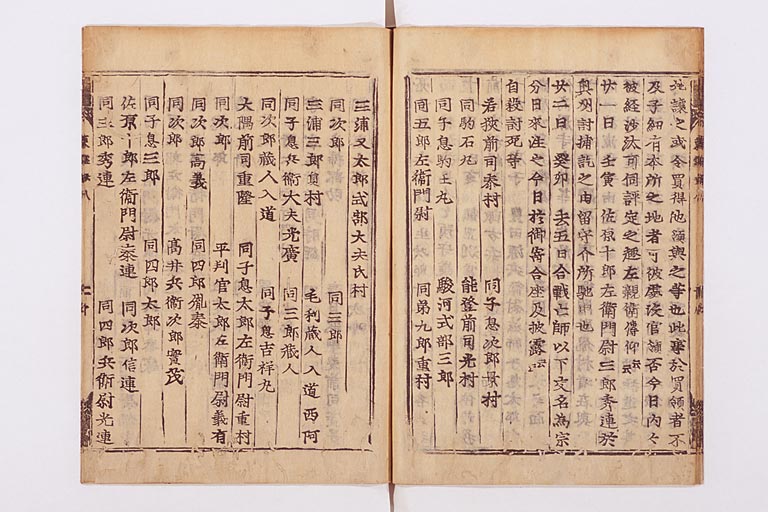 讓之或令買得他領與之等也此事於買領者不
及子細有本所之地者可被處没官領否今日内々
被経沙汰可伺評定之趣左親衛仰云云
廿一日壬寅由佐禄十郎左衛門尉三郎秀連於
奥州討捕訖之由留守介所馳申也
廿二日癸卯去五日合戰亡師以下交名為宗
分日來注之今日於御寄合座及披露云云
自殺討死等
若狭前司泰村 同子息次郎景村
同駒石丸 能登前司光村
同子息駒王丸 駿河式部三郎
同五郎左衛門尉 同弟九郎重村
三浦又太郎式部大夫氏村
同次郎 同三郎
三浦三郎員村 毛利蔵人入道西阿
同子息兵衛大夫光廣 同三郎蔵人
同次郎蔵人入道 同子息吉祥丸
大隅前司重隆 同子息太郎左衛門尉重村
同次郎 平判官太郎左衛門尉義有
同次郎高義 同四郎胤泰
同次郎 高井兵衛次郎實茂
同子息三郎 同四郎太郎
佐原十郎左衛門尉泰連 同次郎信連
同三郎秀連 同四郎兵衛尉光連